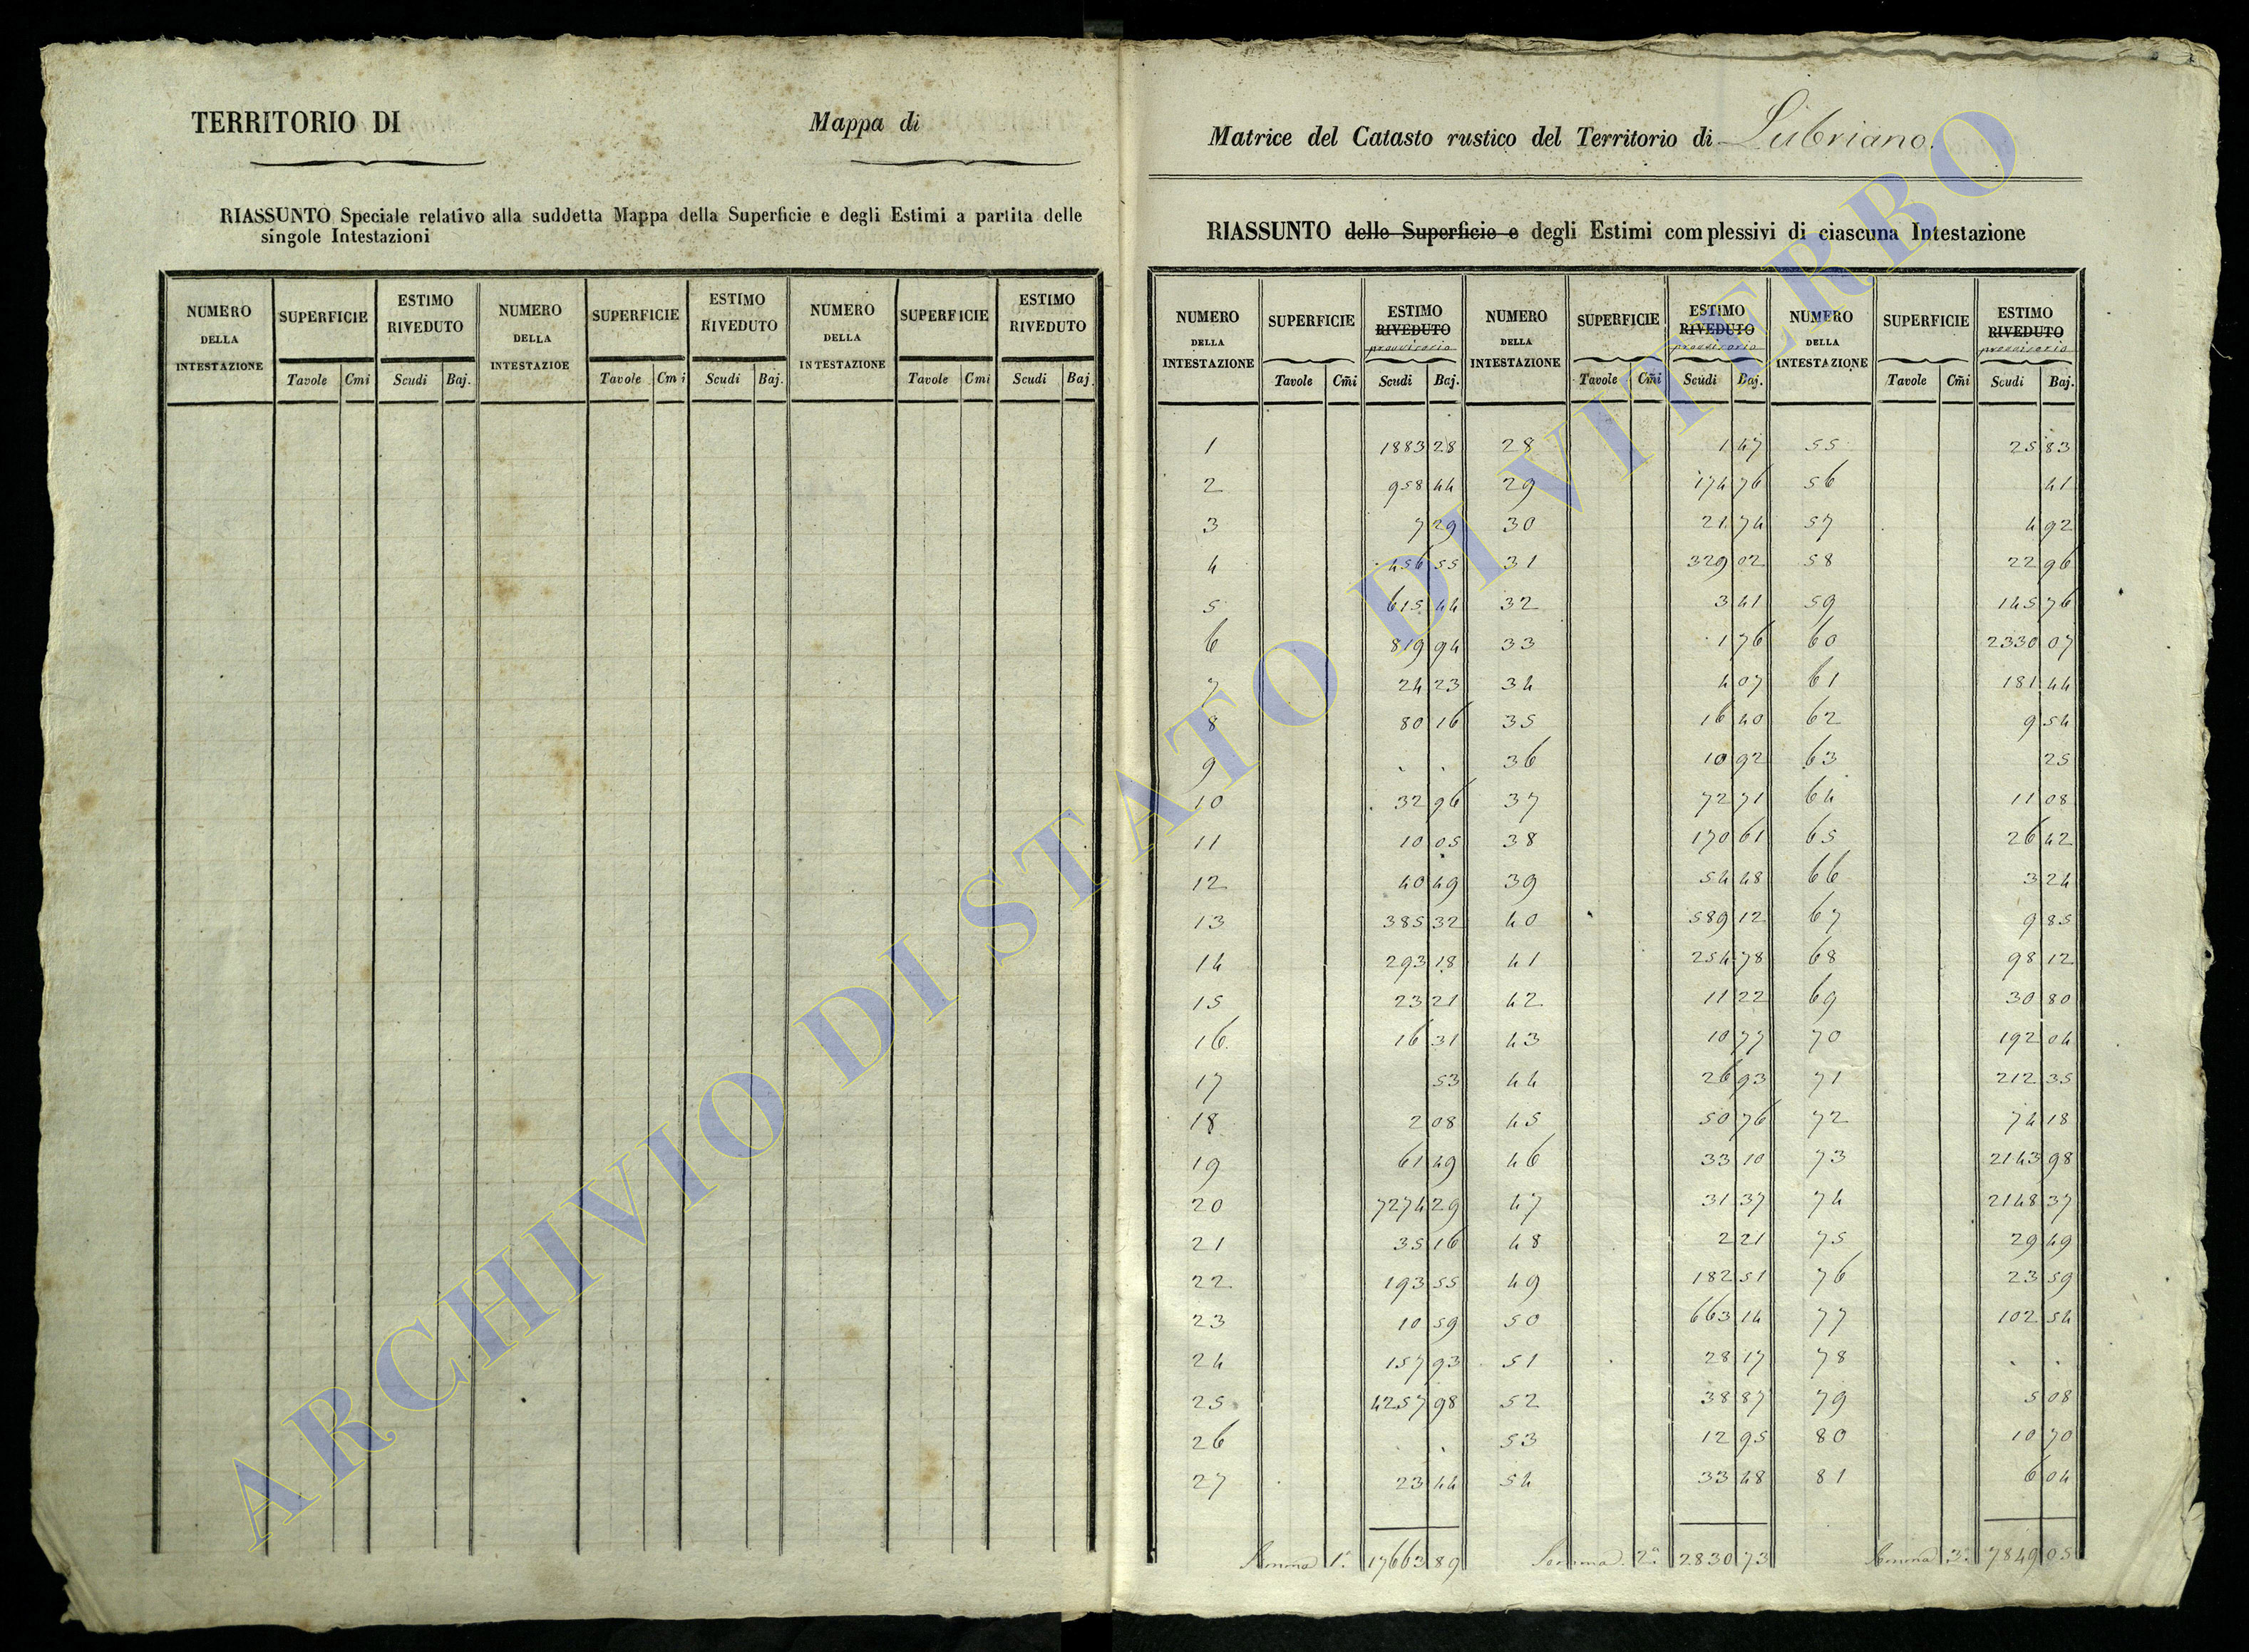 TERRITORIO DI Mappa di
RIASSUNTO Speciale relativo alla suddetta Mappa della Superficie e degli Estimi a partita delle
singole Intestazioni
NUMERO DELLA INTESTAZIONE SUPERFICIE ESTIMO RIVEDUTO NUMERO DELLA INTESTAZIOE SUPERFICIE ESTIMO RIVEDUTO NUMERO DELLA INTESTAZIONE SUPERFICIE ESTIMO RIVEDUTO
Tavole Cmi Scudi Baj. Tavole Cmi Scudi Baj. Tavole Cmi Scudi Baj.
Matrice del Catasto rustico del Territorio di Lubriano.
RIASSUNTO delle Superficie e degli Estimi complessivi di ciascuna Intestazione
NUMERO DELLA INTESTAZIONE SUPERFICIE ESTIMO RIVEDUTO provvisorio NUMERO DELLA INTESTAZIONE SUPERFICIE ESTIMO RIVEDUTO provvisorio NUMERO DELLA INTESTAZIONE SUPERFICIE ESTIMO RIVEDUTO provvisorio
Tavole Cm̃i Scudi Baj. Tavole Cm̃i Scudi Baj. Tavole Cm̃i Scudi Baj.
1 1883 28 28 1 47 55 25 83
2 958 44 29 174 76 56 41
3 7 29 30 21 74 57 4 92
4 456 55 31 329 02 58 22 96
5 615 44 32 3 41 59 145 76
6 819 94 33 1 76 60 2330 07
7 24 23 34 4 07 61 181 44
8 80 16 35 16 40 62 9 54
9 . . 36 10 92 63 25
10 32 96 37 72 71 64 11 08
11 10 05 38 170 61 65 26 42
12 40 49 39 54 48 66 3 24
13 385 32 40 589 12 67 9 85
14 293 18 41 254 78 68 98 12
15 23 21 42 11 22 69 30 80
16 16 31 43 10 77 70 192 04
17 53 44 26 93 71 212 35
18 2 08 45 50 76 72 74 18
19 61 49 46 33 10 73 2143 98
20 7274 29 47 31 37 74 2148 37
21 35 16 48 2 21 75 29 49
22 193 55 49 182 51 76 23 59
23 10 59 50 663 14 77 102 54
24 157 93 51 28 17 78 . .
25 4257 98 52 38 87 79 5 08
26 . . 53 12 95 80 10 70
27 23 44 54 33 48 81 6 04
Somma 1ª 17663 89 Somma 2ª 2830 73 Somma 3ª 7849 05
ARCHIVIO DI STATO DI VITERBO